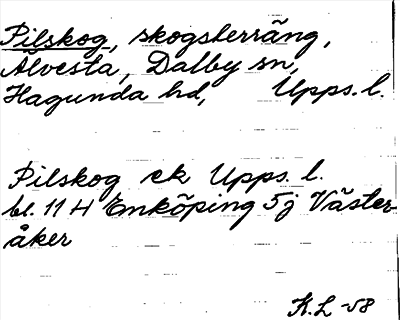 Pilskog, skogsterräng,
Alvesta, Dalby sn,
Hagunda hd, Upps. l.
Pilskog ek Upps. l.
bl. 11 H Enköping 5j Väster-
åker
K.L -58